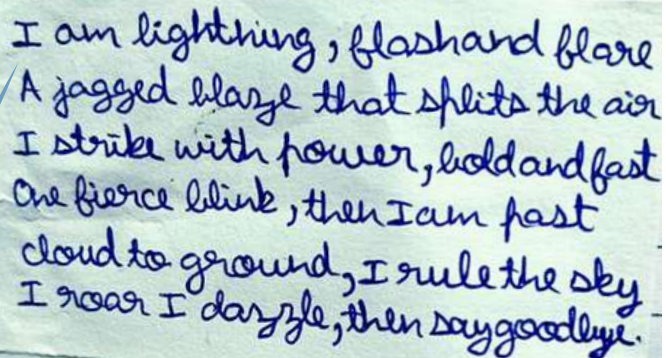 I am lightning, flash and flare
A jagged blaze that splits the air
I strike with power, bold and fast
One fierce blink, then I am past
cloud to ground, I rule the sky
I roar I dazzle, then say goodbye.